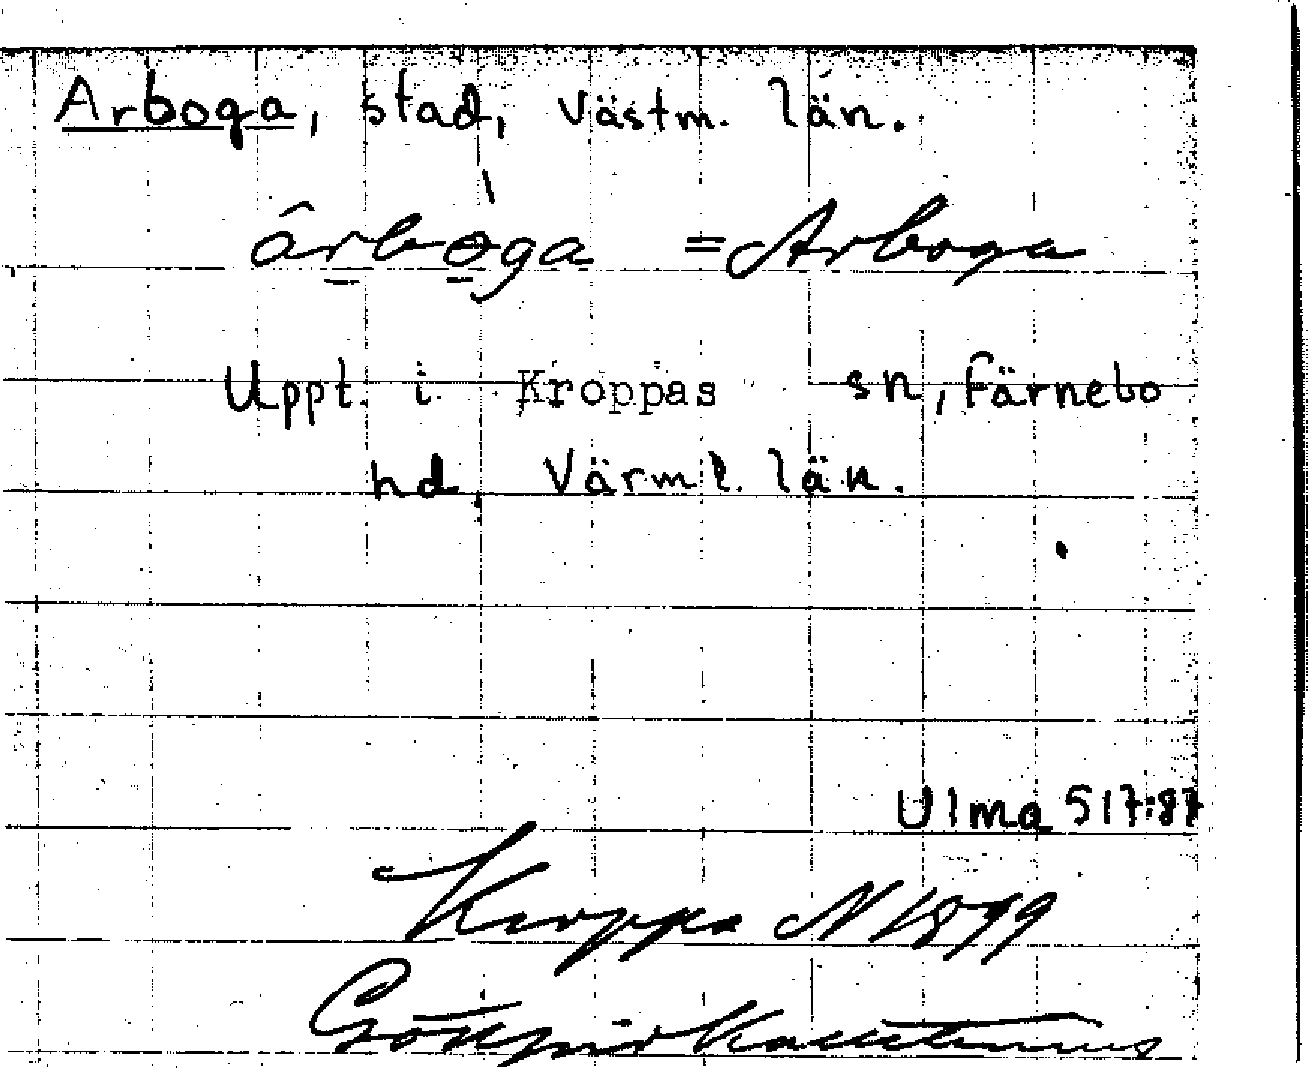 Arboga, stad, Västm. län.
ârbòga = Arboga
Uppt. i Kroppas sn, Färnebo
hd, Värml. län.
Ulma 517:87
Kroppa N 1899